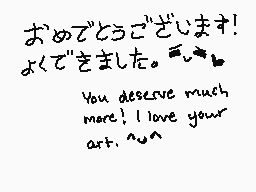 おめでとうございます!
よくできました。
You deserve much
more! I love your
art. ^u^